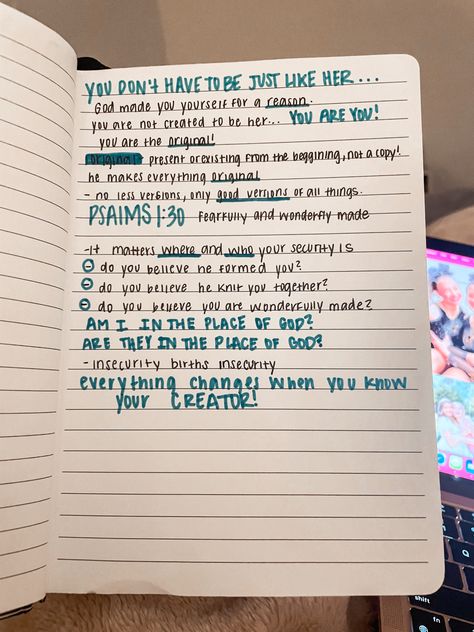 YOU DON'T HAVE TO BE JUST LIKE HER...
God made you yourself for a reason.
you are not created to be her... YOU ARE YOU!
you are the original!
original present or existing from the beggining, not a copy!
he makes everything original
- no less versions, only good versions of all things.
PSAIMS 1:30 fearfully and wonderfly made
-it matters where and who your security is
do you believe he formed you?
do you believe he knit you together?
do you believe you are wonderfully made?
AM I IN THE PLACE OF GOD?
ARE THEY IN THE PLACE OF GOD?
- insecurity births insecurity
everything changes when you know
your CREATOR!
shift
fn